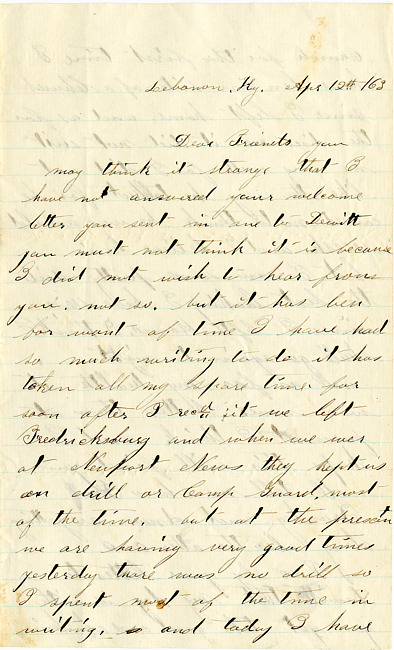 Lebanon, Ky. Apr 12th /63
Dear Friends you
may think it strange that I
have not answered your welcome
letter you sent in one to Dewitt
you must not think it is because
I did not wish to hear from
you. not so. but it has ben
for want of time I have had
so much writing to do it has
taken all my spare time for
soon after I recd it we left
Fredricksburg and when we wer
at Newport News they kept us
on drill or Camp Guard, most
of the time. but at the presen
we are having very good times
yesterday there was no drill so
I spent most of the time in
writing. and today I have